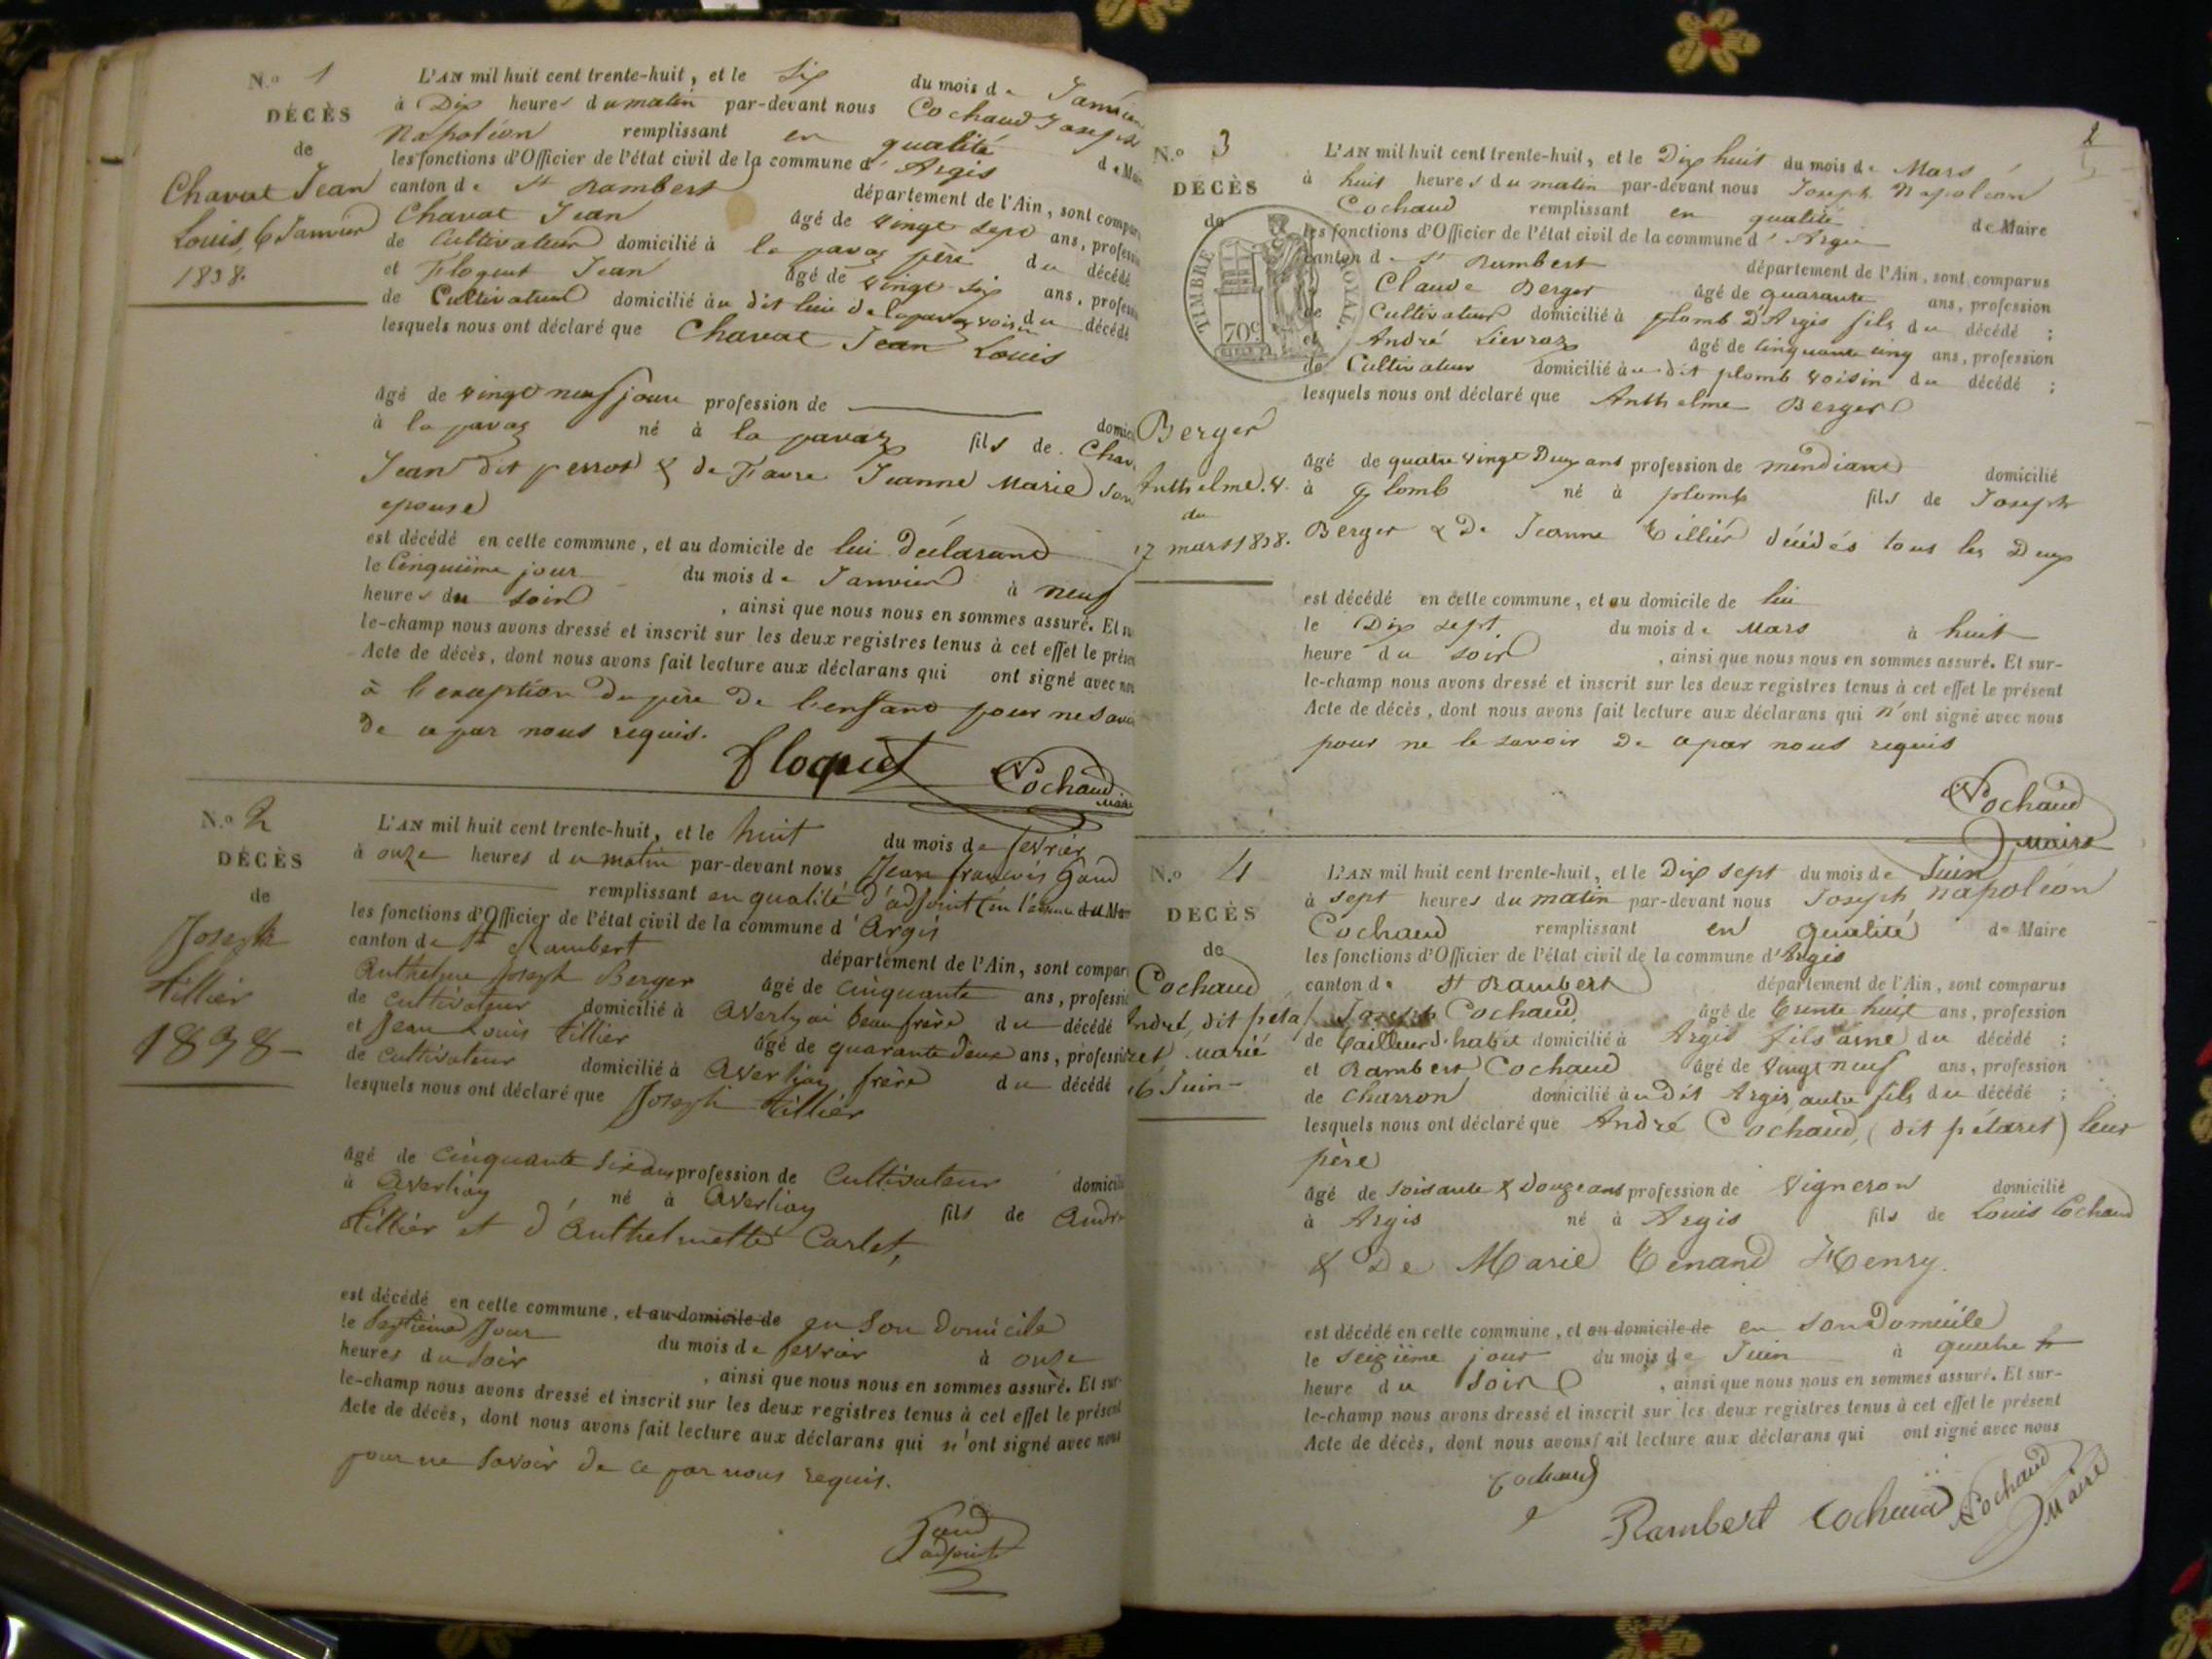 N.º 1
DÉCÈS
de
Chavat Jean
Louis, 6 Janvier
1838.
L'AN mil huit cent trente-huit, et le Six du mois de Janvier
à Dix heures du matin par-devant nous Cochaud Joseph
Napoléon remplissant en qualité de Maire
les fonctions d'Officier de l'état civil de la commune d'Argis
canton de St Rambert département de l'Ain, sont compar
Chavat Jean âgé de vingt sept ans, profession
de Cultivateur domicilié à la pavaz père du décédé
et Floquet Jean âgé de vingt six ans, profession
de Cultivateur domicilié au dit lieu de la pavaz voisin du décédé
lesquels nous ont déclaré que Chavat Jean Louis
âgé de vingt neuf jours profession de
à la pavaz né à la pavaz fils de Chav
Jean dit perrot & de Favre Jeanne Marie son
epouse
est décédé en cette commune, et au domicile de lui déclarant
le Cinquième jour du mois de Janvier à neuf
heures du soir, ainsi que nous nous en sommes assuré. Et
le-champ nous avons dressé et inscrit sur les deux registres tenus à cet effet le présen
Acte de décès, dont nous avons fait lecture aux déclarans qui ont signé avec nou
à l'exception du père de l'enfant pour ne savoir
de ce par nous requis.
Floquet Cochaud Maire
N.º 2
DÉCÈS
de
Joseph
tillier
1838
L'AN mil huit cent trente-huit, et le huit du mois de fevrier
à onze heures du matin par-devant nous Jean francois Gand
remplissant en qualité d'adjoint (en l'absence du Mai
les fonctions d'Officier de l'état civil de la commune d'Argis
canton de St Rambert département de l'Ain, sont compar
Anthelme Joseph Berger âgé de cinquante ans, professio
de cultivateur domicilié à Averliaz beau frère du décédé
et Jean Louis tillier âgé de quarante deux ans, professi
de cultivateur domicilié à Averliaz frère du décédé
lesquels nous ont déclaré que Joseph tillier
âgé de cinquante six ans profession de cultivateur domicili
à Averliaz né à Averliaz fils de André
tillier et d'Anthelmette Carlet,
est décédé en cette commune, et au domicile de en son domicile
le septième jour du mois de fevrier à onze
heures du soir, ainsi que nous nous en sommes assuré. Et sur-
le-champ nous avons dressé et inscrit sur les deux registres tenus à cet effet le présent
Acte de décès, dont nous avons fait lecture aux déclarans qui n'ont signé avec nous
pour ne savoir de ce par nous requis.
Gand
adjoint
2
N.º 3
DÉCÈS
de
TIMBRE ROYAL.
70c
Berger
Anthelme. V.
du
17 mars 1838.
L'AN mil huit cent trente-huit, et le Dix huit du mois de Mars
à huit heures du matin par-devant nous Joseph Napoléon
Cochaud remplissant en qualité de Maire
les fonctions d'Officier de l'état civil de la commune d'Argis
canton de St Rambert département de l'Ain, sont comparus
Claude Berger âgé de quarante ans, profession
de Cultivateur domicilié à plomb d'Argis fils du décédé ;
et André Lievraz âgé de Cinquante cinq ans, profession
de Cultivateur domicilié au dit plomb voisin du décédé ;
lesquels nous ont déclaré que Anthelme Berger
âgé de quatre vingt Deux ans profession de mendiant domicilié
à plomb né à plomb fils de Joseph
Berger & De Jeanne tillier décédés tous les Deux
est décédé en cette commune, et au domicile de lui
le Dix sept du mois de Mars à huit
heure du soir, ainsi que nous nous en sommes assuré. Et sur-
le-champ nous avons dressé et inscrit sur les deux registres tenus à cet effet le présent
Acte de décès, dont nous avons fait lecture aux déclarans qui n'ont signé avec nous
pour ne le savoir de ce par nous requis
Cochaud
Maire
N.º 4
DÉCÈS
de
Cochaud
André, dit péta
ret Marié
16 Juin
L'AN mil huit cent trente-huit, et le Dix sept du mois de Juin
à sept heures du matin par-devant nous Joseph Napoléon
Cochaud remplissant en qualité de Maire
les fonctions d'Officier de l'état civil de la commune d'Argis
canton de St Rambert département de l'Ain, sont comparus
Joseph Cochaud âgé de trente huit ans, profession
de tailleur d'habit domicilié à Argis fils ainé du décédé ;
et Rambert Cochaud âgé de vingt neuf ans, profession
de Charron domicilié au dit Argis autre fils du décédé ;
lesquels nous ont déclaré que André Cochaud, (dit pétaret) leur
père
âgé de soisante & douze ans profession de Vigneron domicilié
à Argis né à Argis fils de Louis Cochaud
& De Marie tenand Henry.
est décédé en cette commune, et au domicile de en son Domicile
le seizième jour du mois de Juin à quatre
heure du soir, ainsi que nous nous en sommes assuré. Et sur-
le-champ nous avons dressé et inscrit sur les deux registres tenus à cet effet le présent
Acte de décès, dont nous avons fait lecture aux déclarans qui ont signé avec nous
Cochaud
Rambert Cochaud Cochaud Maire